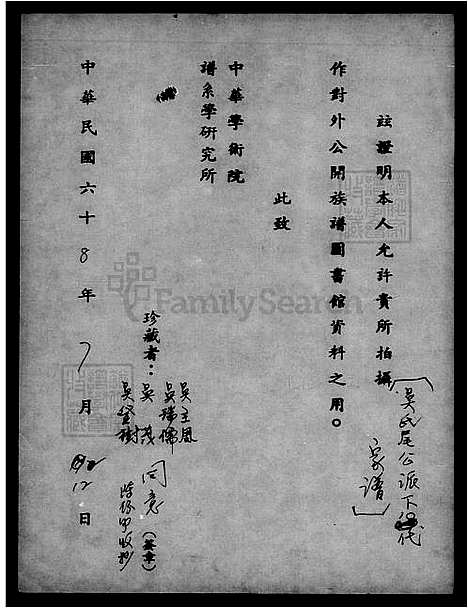 茲證明本人允許貴所拍攝
〔吳氏尾公派下
家譜〕
作對外公開族譜圖書館資料之用。
此致
中華學術院
譜系學研究所
珍藏者：
吳主恩
吳瑞儒
吳茂
吳登樹
同意
(簽章)
中華民國六十8年7月12日
FamilySearch